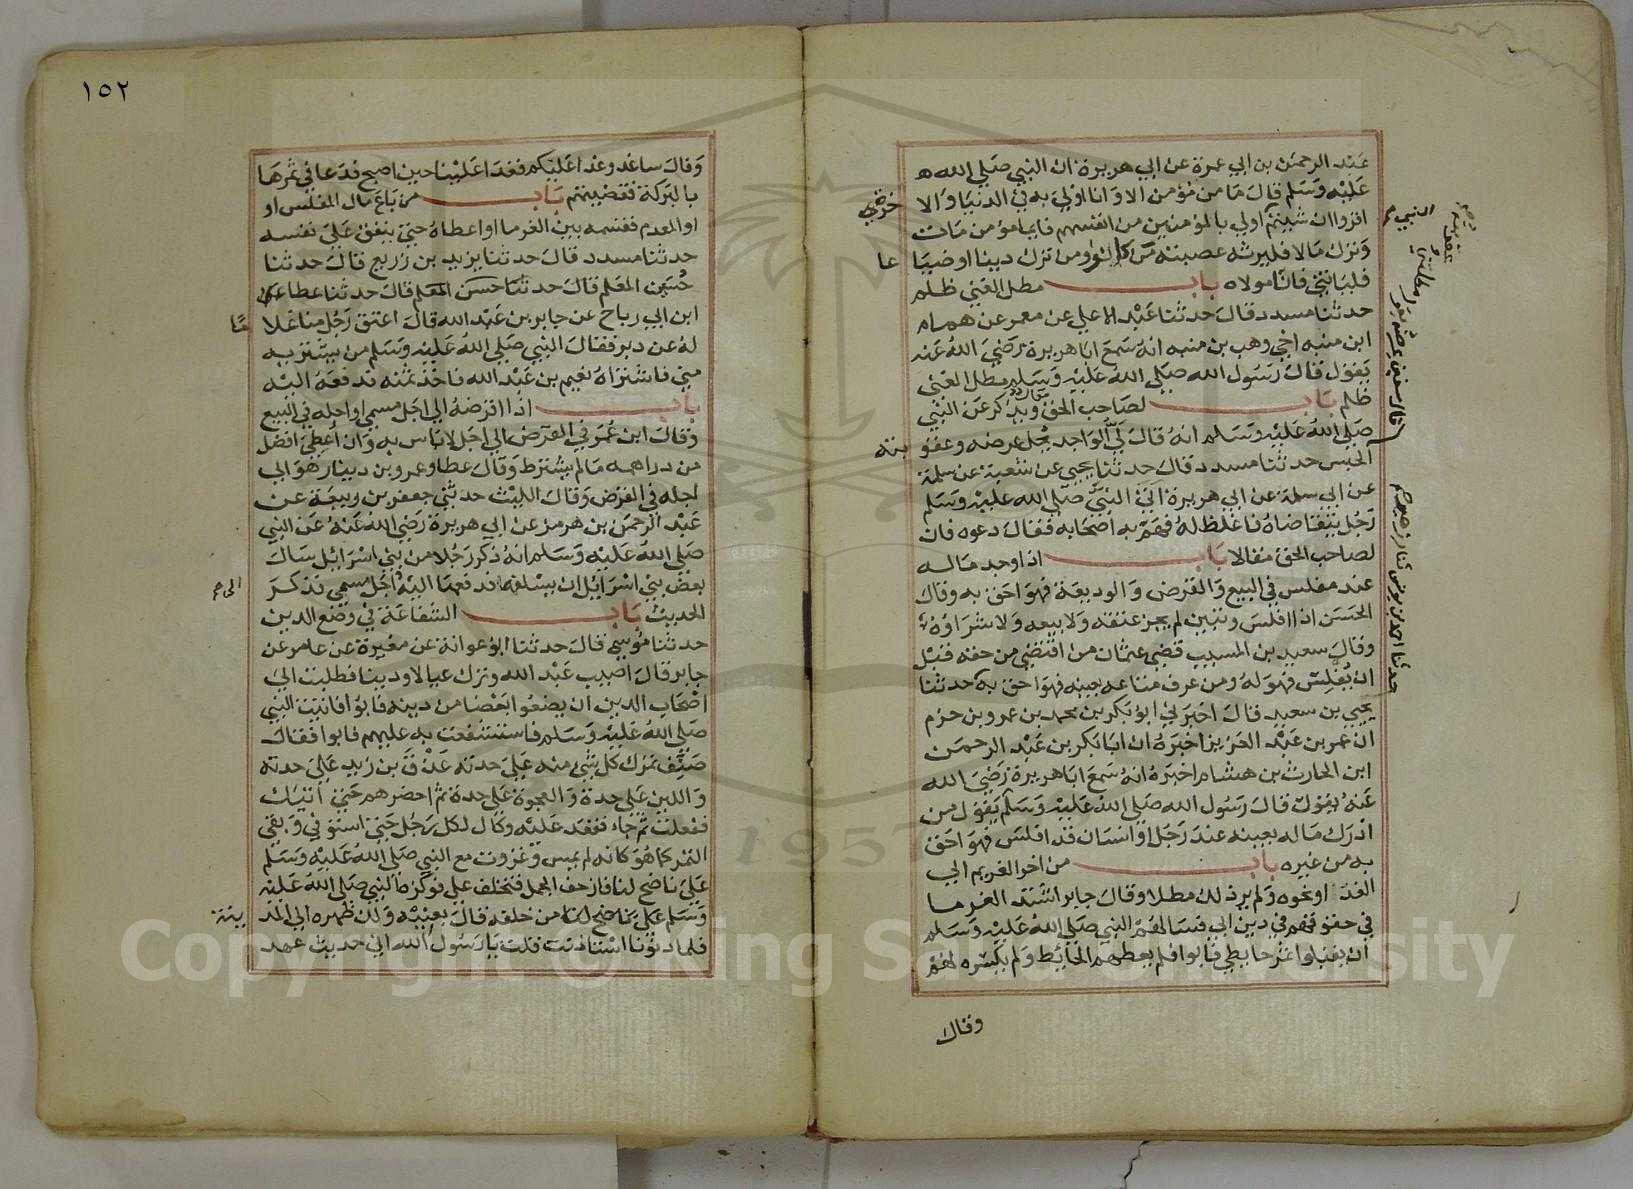 عبد الرحمن بن ابي عمرة عن ابي هريرة ان النبي صلي الله
عليه وسلم قال ما من مؤمن الا وانا اولي به في الدنيا والا
خرة
اقروا ان شيتم النبي اولي بالمؤمنين من انفسهم فايما مؤمن مات
وترك مالا فليرثه عصبته من كانوا ومن ترك دينا او ضيا
عا
فلياتني فانا مولاه باب مطل الغني ظلم
حدثنا مسدد قال حدثنا عبد الاعلي عن معمر عن همام
ابن منبه اخي وهب بن منبه انه سمع ابا هريرة رضي الله عنه
يقول قال رسول الله صلي الله عليه وسلم مطل الغني
ظلم باب لصاحب الحق مقال ويذكر عن النبي
صلي الله عليه وسلم انه قال لي الواجد يحل عرضه وعقو
بته
قال سفين عرضه يقول مطلتني وعقوبته
الحبس حدثنا مسدد قال حدثنا يحيي عن شعبة عن سلمة
عن ابي سلمة عن ابي هريرة اتي النبي صلي الله عليه وسلم
رجل يتقاضاه فاغلظ له فهم به اصحابه فقال دعوه فان
لصاحب الحق مقالا باب اذا وجد ماله
عند مفلس في البيع والقرض والوديعة فهو احق به وقال
الحسن اذا افلس وتبين لم يجز عتقه ولا بيعه ولا شراؤه
وقال سعيد بن المسيب قضي عثمان من اقتضي من حقه قبل
ان يفلس فهو له ومن عرف متاعه بعينه فهو احق به حدثنا
حدثنا احمد بن يونس ثنا زهير
يحيي بن سعيد قال اخبرني ابو بكر بن محمد بن عمرو بن حزم
ان عمر بن عبد العزيز اخبره ان ابا بكر بن عبد الرحمن
ابن الحارث بن هشام اخبره انه سمع ابا هريرة رضي الله
عنه يقول قال رسول الله صلي الله عليه وسلم يقول من
ادرك ماله بعينه عند رجل او انسان قد افلس فهو احق
به من غيره باب من اخر الغريم الي
الغد او نحوه ولم ير ذلك مطلا وقال جابر اشتد الغرما
في حقوقهم في دين ابي فسالهم النبي صلي الله عليه وسلم
ان يقبلوا ثمر حايطي فابوا فلم يعطهم الحائط ولم يكسره لهم
وقال
١٥٢
وقال ساغدوا عليكم فغدا علينا حين اصبح فدعا في ثمرها
بالبركة فقضيتهم باب من باع مال المفلس او
او المعدم فقسمه بين الغرما او اعطاه حتي ينفق علي نفسه
حدثنا مسدد قال حدثنا يزيد بن زريع قال حدثنا
حسين المعلم قال حدثنا حسين المعلم قال حدثنا عطا
ابن ابي رباح عن جابر بن عبد الله قال اعتق رجل منا غلا
ما
له عن دبر فقال النبي صلي الله عليه وسلم من يشتريه
مني فاشتراه نعيم بن عبد الله فاخذ ثمنه فدفعه اليه
باب اذا اقرضه الي اجل مسمي او اجله في البيع
وقال ابن عمر في القرض الي اجل لا باس به وان اعطي افضل
من دراهمه ما لم يشترط وقال عطا وعمرو بن دينار هو الي
اجله في القرض وقال الليث حدثني جعفر بن ربيعة عن
عبد الرحمن بن هرمز عن ابي هريرة رضي الله عنه عن النبي
صلي الله عليه وسلم انه ذكر رجلا من بني اسرائيل سال
بعض بني اسرائيل ان يسلفه فدفعها اليه الي اجل مسمي فذكر
الحديث باب الشفاعة في وضع الدين
حدثنا موسي قال حدثنا ابو عوانة عن مغيرة عن عامر عن
جابر قال اصيب عبد الله وترك عيالا ودينا فطلبت الي
اصحاب الدين ان يضعوا بعضا من دينه فابوا فاتيت النبي
صلي الله عليه وسلم فاستشفعت به عليهم فابوا فقال
صنف تمرك كل شي منه علي حدته عذق بن زيد علي حدته
واللين علي حدة والعجوة علي حدة ثم احضرهم حتي اتيك
ففعلت ثم جاء فقعد عليه وكال لكل رجل حتي استوفي وبقي
التمر كما هو كانه لم يمس وغزوت مع النبي صلي الله عليه وسلم
علي ناضح لنا فازحف الجمل فتخلف علي فوكزه النبي صلي الله عليه
وسلم من خلفه قال بعنيه ولك ظهره الي المد
ينة
فلما دنونا استاذنت قلت يا رسول الله اني حديث عهد
Copyright © King Saud University
1957